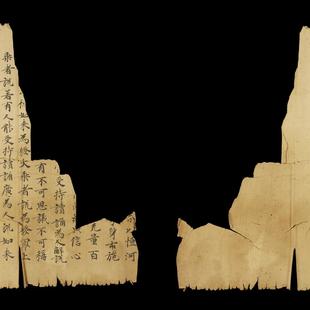 恒河
身布施
无量百
信心
受持讀誦為人解說
有不可思議不可稱
如来為發大乘者說為發最上
乘者說若有人能受持讀誦廣為人說如来